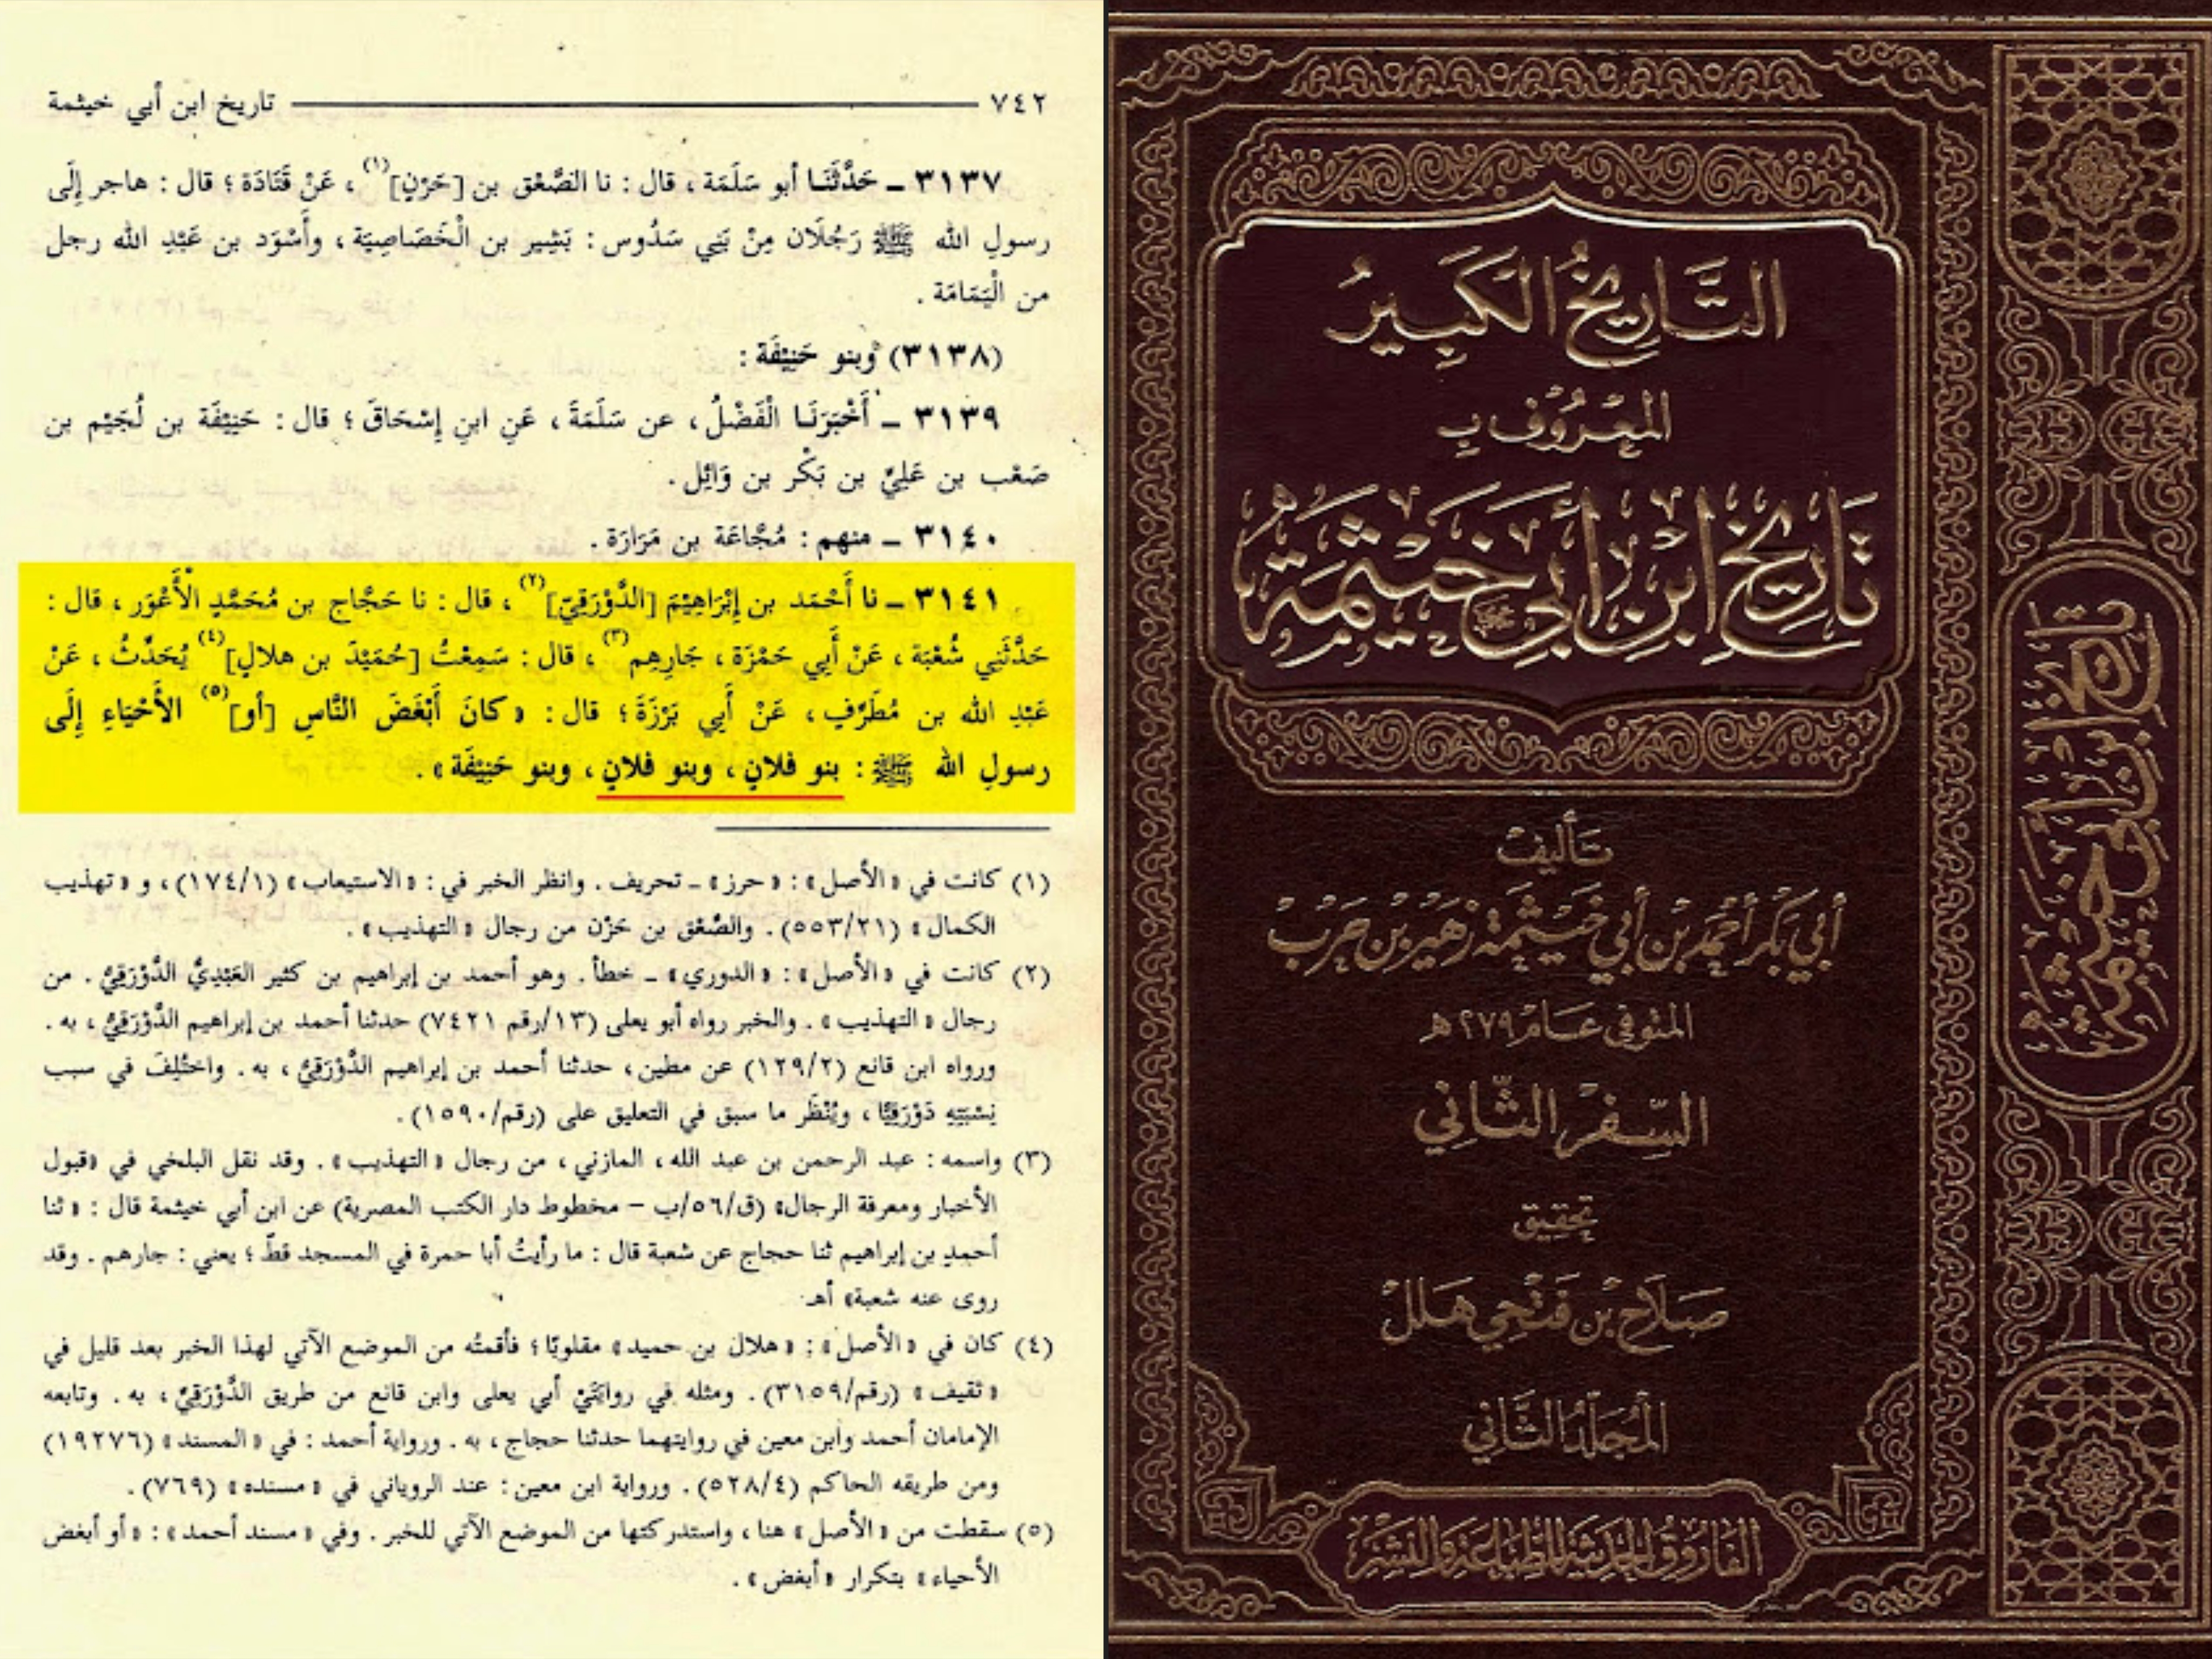 ٧٤٢ تاريخ ابن أبي خيثمة
٣١٣٧ ـ حَدَّثَنَا أبو سَلَمَة ، قال : نا الصَّعْق بن [حَزْنٍ](١) ، عَنْ قَتَادَة ؛ قال : هاجر إِلَى
رسولِ الله ﷺ رَجُلَان مِنْ بَنِي سَدُوس : بَشِير بن الْخَصَاصِيَة ، وأَسْوَد بن عَبْدِ الله رجل
من الْيَمَامَة .
(٣١٣٨) وبنو حَنِيْفَة :
٣١٣٩ ـ أَخْبَرَنَا الْفَضْلُ ، عن سَلَمَةَ ، عَنِ ابنِ إِسْحَاقَ ؛ قال : حَنِيْفَة بن لُجَيْم بن
صَعْب بن عَلِيّ بن بَكْر بن وَائِل .
٣١٤٠ ـ منهم : مُجَّاعَة بن مَرَارَة .
٣١٤١ ـ نا أَحْمَد بن إِبْرَاهِيْمَ [الدَّوْرَقِيّ](٢) ، قال : نا حَجَّاج بن مُحَمَّدٍ الْأَعْوَر ، قال :
حَدَّثَنِي شُعْبَة ، عَنْ أَبِي حَمْزَة ، جَارِهِم(٣) ، قال : سَمِعْتُ [حُمَيْدَ بن هلالٍ](٤) يُحَدِّثُ ، عَنْ
عَبْدِ الله بن مُطَرِّفٍ ، عَنْ أَبِي بَرْزَةَ ؛ قال : « كانَ أَبْغَضَ النَّاسِ [أو](٥) الأَحْيَاءِ إِلَى
رسولِ الله ﷺ : بنو فلانٍ ، وبنو فلانٍ ، وبنو حَنِيْفَة » .
(١) كانت في « الأصل » : « حرز » ـ تحريف . وانظر الخبر في : « الاستيعاب » (١/١٧٤) ، و « تهذيب
الكمال » (٢١/٥٥٣) . والصَّعْق بن حَزْن من رجال « التهذيب » .
(٢) كانت في « الأصل » : « الدوري » ـ خطأ . وهو أحمد بن إبراهيم بن كثير العَبْدِيُّ الدَّوْرَقِيُّ . من
رجال « التهذيب » . والخبر رواه أبو يعلى (١٣/رقم ٧٤٢١) حدثنا أحمد بن إبراهيم الدَّوْرَقِيُّ ، به .
ورواه ابن قانع (٢/١٢٩) عن مطين ، حدثنا أحمد بن إبراهيم الدَّوْرَقِيُّ ، به . واختُلِفَ في سبب
نِسْبَتِهِ دَوْرَقِيًّا ، ويُنْظَر ما سبق في التعليق على (رقم/١٥٩٠) .
(٣) واسمه : عبد الرحمن بن عبد الله ، المازني ، من رجال « التهذيب » . وقد نقل البلخي في «قبول
الأخبار ومعرفة الرجال» (ق/٥٦/ب – مخطوط دار الكتب المصرية) عن ابن أبي خيثمة قال : « ثنا
أحمد بن إبراهيم ثنا حجاج عن شعبة قال : ما رأيتُ أبا حمرة في المسجد قطّ ؛ يعني : جارهم . وقد
روى عنه شعبة» أهـ
(٤) كان في « الأصل » : « هلال بن حميد » مقلوبًا ؛ فأقمتُه من الموضع الآتي لهذا الخبر بعد قليل في
« ثقيف » (رقم/٣١٥٩) . ومثله في روايَتَيْ أبي يعلى وابن قانع من طريق الدَّوْرَقِيُّ ، به . وتابعه
الإمامان أحمد وابن معين في روايتهما حدثنا حجاج ، به . ورواية أحمد : في « المسند » (١٩٢٧٦)
ومن طريقه الحاكم (٤/٥٢٨) . ورواية ابن معين : عند الروياني في « مسنده » (٧٦٩) .
(٥) سقطت من « الأصل » هنا ، واستدركتها من الموضع الآتي للخبر . وفي « مسند أحمد » : « أو أبغض
الأحياء » بتكرار « أبغض » .
التَّارِيخُ الكَبِيرُ
المَعْرُوف بِ
تَارِيخ ابْنِ أَبِي خَيْثَمَة
تَأليفْ
أَبِي بَكْر أَحْمَد بْن أَبِي خَيْثَمَة زُهَيْر بْن حَرْب
المتوفى عَام ٢٧٩هـ
السِّفْر الثَّانِي
تحقيق
صَلَاح بْن فَتْحِي هَلَل
المُجَلَّدُ الثَّانِي
الفَارُوق الحَدِيثَة لِلطِّبَاعَة وَالنَّشْر
تاريخ ابن أبي خيثمة